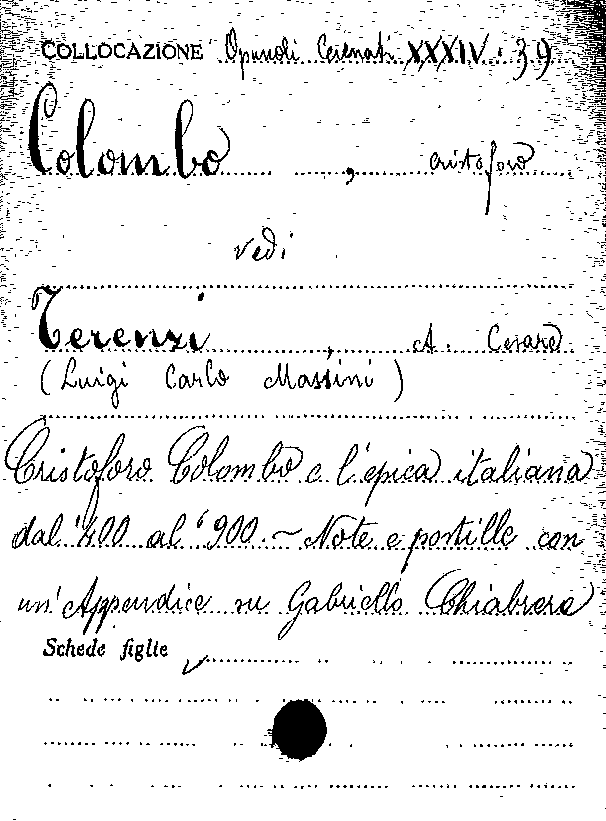 COLLOCAZIONE Opuscoli Cesenati XXXIV. 39
Colombo, Cristoforo
vedi
Terenzi, A. Cesare
(Luigi Carlo Massini)
Cristoforo Colombo e l'epica italiana
dal '400 al '900. - Note e postille con
un' Appendice su Gabriello Chiabrera
Schede figlie